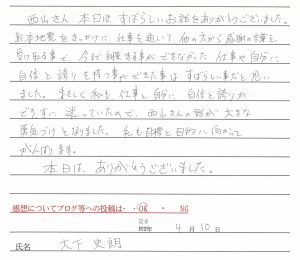 西山さん 本日は すばらしいお話をありがとうございました。
熊本地震をきっかけに 仕事を通いて 他の方から感謝の言葉を
受け取る事で、今まで自慢する事ができなかった 仕事や自分に
自信と誇りを持つ事ができた事は すばらしい事だと思い
ました。まさしく私も 仕事と自分に 自信と誇りが
できずに 迷っていたので、西山さんの話が 大きな
東辺づけとなりました。私も目標と目的に向かって
がんばります。
本日は ありがとうございました。
感想についてブログ等への投稿は・・OK ・ NG
R5
4月10日
氏名 大下 史朗